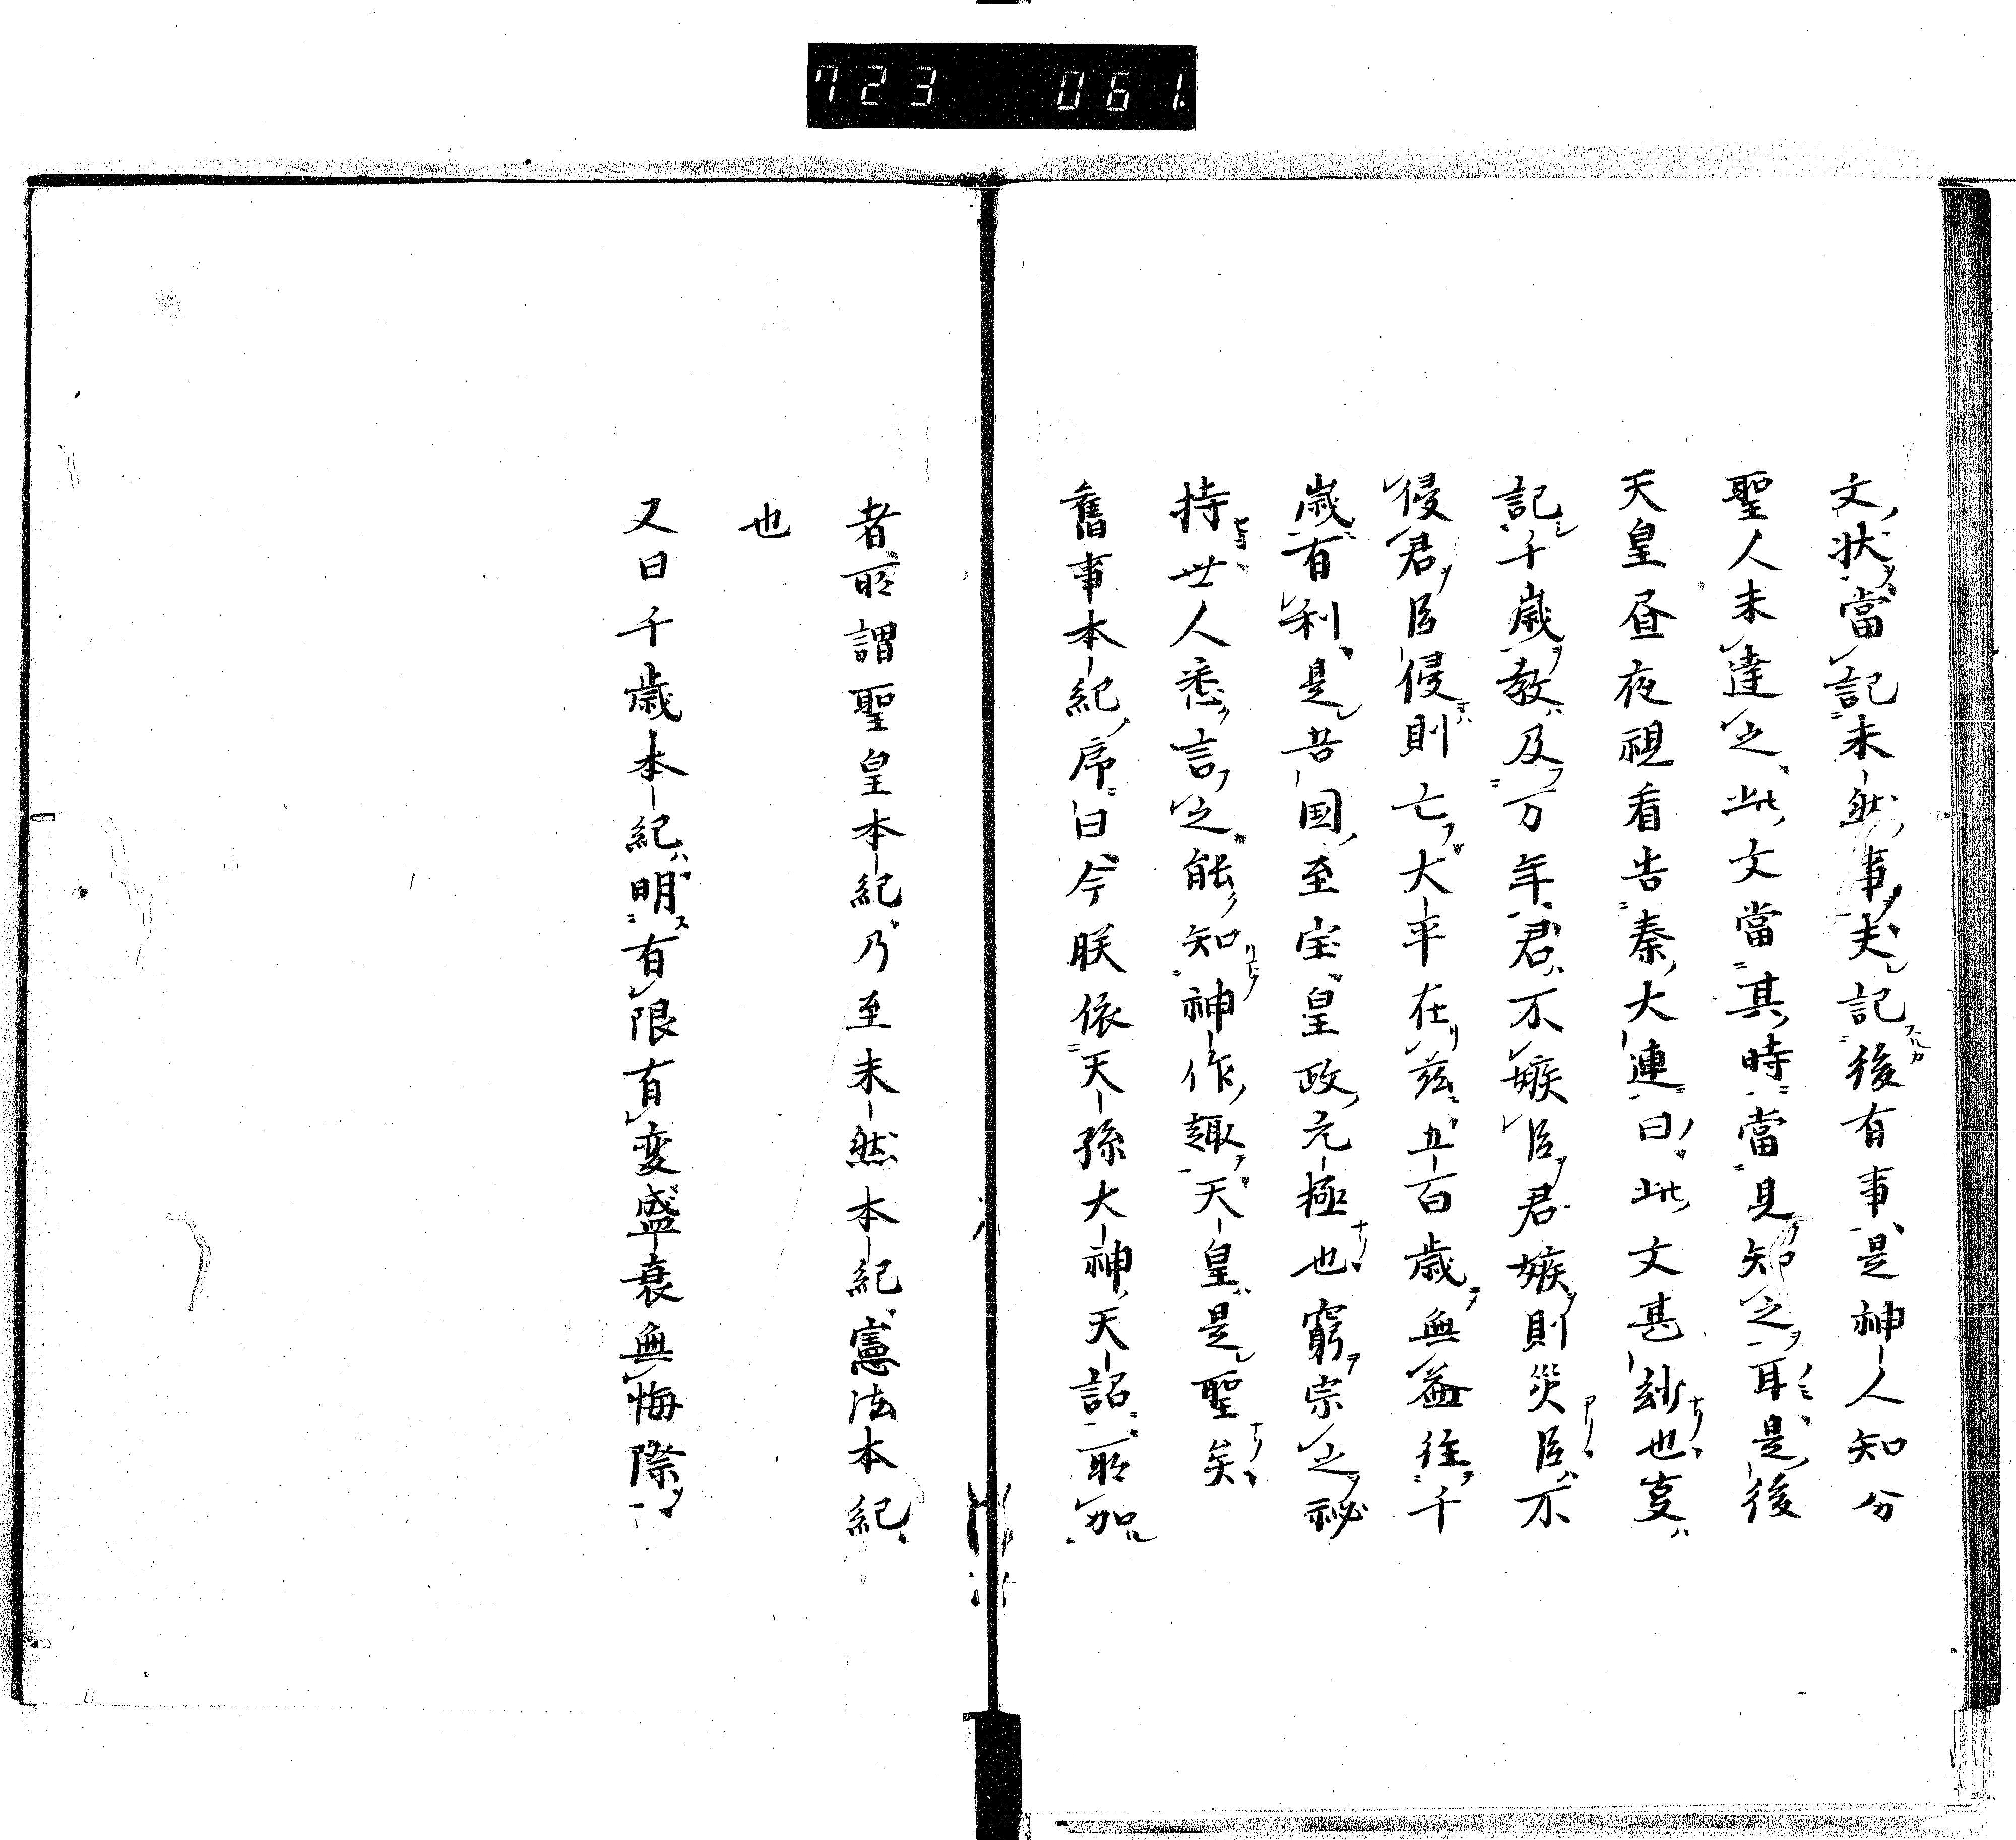 723 061
文状當記未然事夫記後有事是神人知分
聖人未達之此文當其時當見知之耳是後
天皇昼夜視看告秦大連曰此文甚玅也
記千歳教及万年君不嫉臣君嫉則災臣不
侵君臣侵則亡大平在茲五百歳無益往千
歳有利是吾国至宝皇政元極也窮宗之秘
持世人悉言之能知神作趣天皇是聖矣
舊事本紀序曰今朕依天孫大神天詔所加
者所謂聖皇本紀乃至未然本紀憲法本紀
也
又曰千歳本紀明有限有変盛衰無悔際